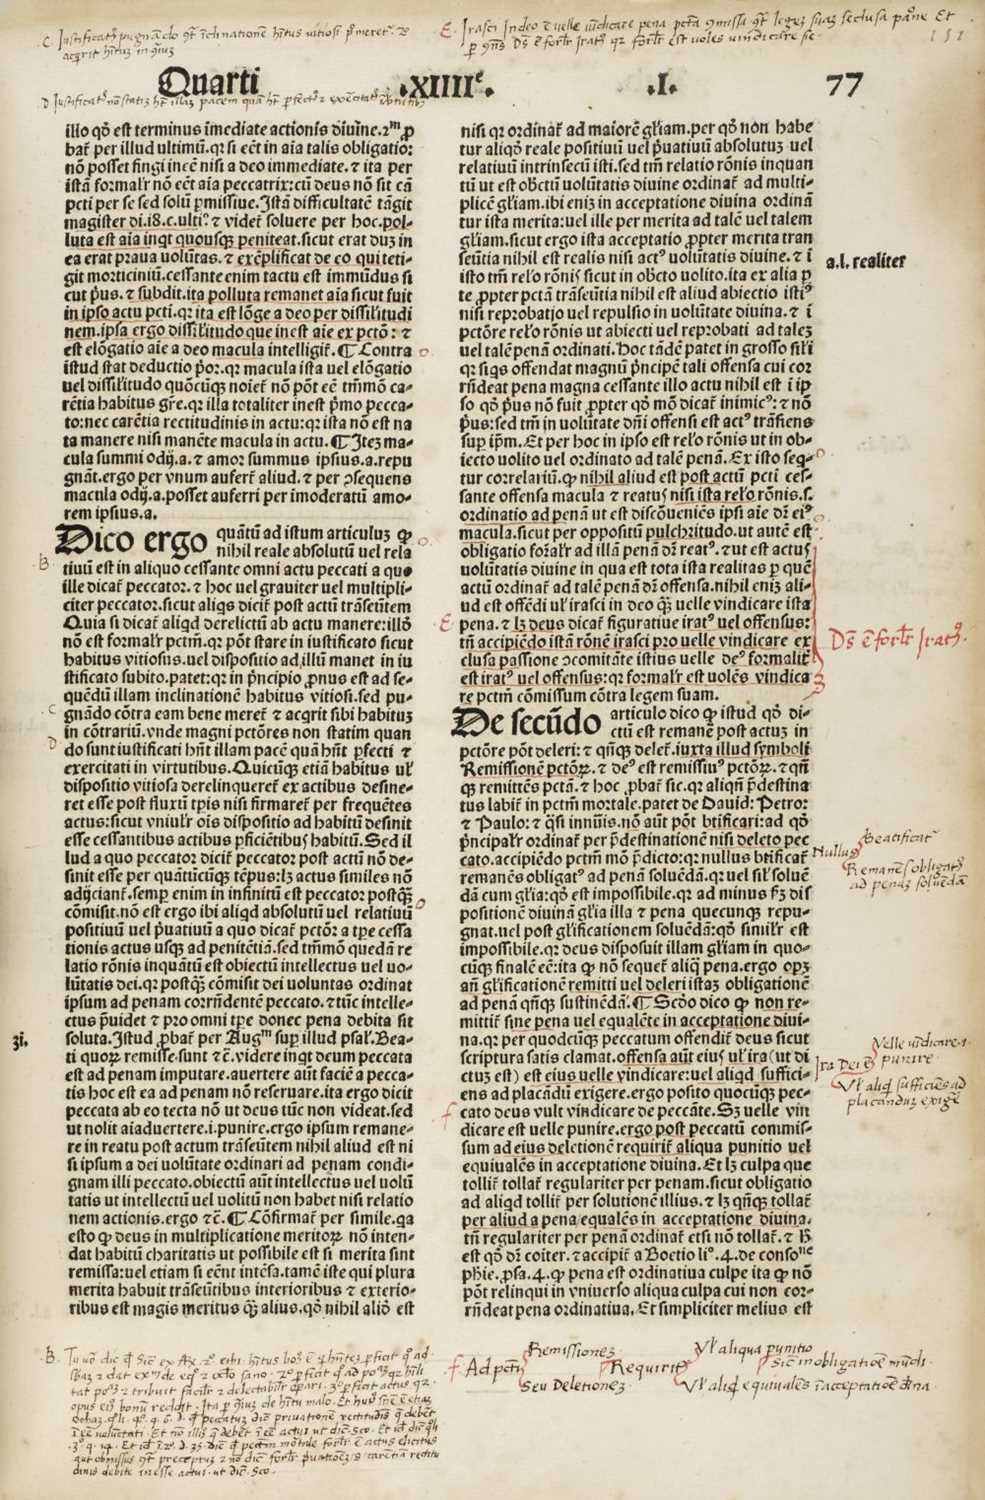 Quarti .XIIIIᵉ. .I. 77
illo qđ est terminus īmediate actionis diuine.2ᵐ ꝓ
bat̃ per illud ultimū.qꝛ si eēt in aīa talis obligatio:
nō posset fingi incē nisi a deo immediate.⁊ ita per
istā formalr̃ nō eēt aīa peccatrix:cū deus nō sit cā
pcti per se sed solū ꝑmissiue.Istā difficultatē tāgit
magister di.i8.c.ulti.⁊ videt̃ soluere per hoc.pol-
luta est aīa inqt quousqꝫ peniteat.sicut erat duꝫ in
ea erat praua volūtas.⁊ exēplificat de eo qui teti-
git morticiniū.cessante enim tactu est immūdus si
cut pꝰus.⁊ subdit.ita polluta remanet aīa sicut fuit
in ipso actu pcti.qꝛ ita est lōge a deo per dissilitudi
nem.ipsa ergo dissilitudo que inest aīe ex pctō: ⁊
est elōgatio aīe a deo macula intelligit̃.¶ Contra
istud stat deductio pꝰor.qꝛ macula ista uel elōgatio
uel dissilitudo quōcūqꝫ noiet̃ nō pōt eē tm̄mō ca-
rētia habitus gr̃e.qꝛ illa totaliter inest pꝰmo pecca-
to:nec carētia rectitudinis in actu:qꝛ ista nō est na
ta manere nisi manēte macula in actu.¶ Iteꝫ ma-
cula summi odij.a.⁊ amor summus ipsius.a.repu
gnāt.ergo per vnum aufert̃ aliud.⁊ per ɔsequens
macula odij.a.posset auferri per imoderatū amo-
rem ipsius.a.
Dico ergo quātū ad istum articuluꝫ ꝙ
nihil reale absolutū uel rela
tiuū est in aliquo cessante omni actu peccati a quo
ille dicat̃ peccator.⁊ hoc uel grauiter uel multipli-
citer peccator.sicut aliqs dicit̃ post actū trāseūtem
Quia si dicat̃ aliqd derelictū ab actu manere:illō
nō est formalr̃ pctm̄.qꝛ pōt stare in iustificato sicut
habitus vitiosus.uel dispositio ad illū manet in iu
stificato subito.patet:qꝛ in pꝰncipio ꝓnus est ad se-
quēdū illam inclinationē habitus vitiosi.sed pu-
gnādo cōtra eam bene meret̃ ⁊ acqrit sibi habituꝫ
in cōtrariū.vnde magni pctōres non statim quan
do sunt iustificati hn̄t illam pacē quā hn̄t ꝑfecti ⁊
exercitati in virtutibus.Quicūqꝫ etiā habitus ul̃
dispositio vitiosa derelinqueret̃ ex actibus desine-
ret esse post fluxū tꝑis nisi firmaret̃ per frequētes
actus:sicut vniulr̃ oīs dispositio ad habitū desinit
esse cessantibus actibus ꝑficiētibus habitū.Sed il
lud a quo peccator dicit̃ peccator post actū nō de-
sinit esse per quātūcūqꝫ tēpus:lꝫ actus similes nō
adijciant̃.semꝑ enim in infinitū est peccator postqꝫ
cōmisit.nō est ergo ibi aliqd absolutū uel relatiuū
positiuū uel pꝰuatiuū a quo dicat̃ pctōr a tꝑe cessa
tionis actus usqꝫ ad penitētiā.sed tm̄mō quedā re
latio rōnis inquātū est obiectū intellectus uel vo-
lūtatis dei.qꝛ postqꝫ cōmisit dei voluntas ordinat
ipsum ad penam corrn̄dentē peccato.⁊ tūc intelle-
ctus pꝰuidet ⁊ pro omni tꝑe donec pena debita sit
soluta.Istud ꝓbat̃ per Augᵐ suꝑ illud psal.Bea-
ti quoꝝ remisse sunt ⁊c̄.videre inqt deum peccata
est ad penam imputare.auertere aūt faciē a pecca-
tis hoc est ea ad penam nō reseruare.ita ergo dicit
peccata ab eo tecta nō ut deus tūc non videat.sed
ut nolit aīaduertere.i.punire.ergo ipsum remane-
re in reatu post actum trāseūtem nihil aliud est ni
si ipsum a dei volūtate ordinari ad penam condi-
gnam illi peccato.obiectū aūt intellectus uel volū
tatis ut intellectū uel uolitū non habet nisi relatio
nem actionis.ergo ⁊c̄.¶ Cōfirmat̃ per simile.qa
esto ꝙ deus in multiplicatione meritoꝝ nō inten-
dat habitū charitatis ut possibile est si merita sint
remissa:uel etiam si eēnt intēsa.tamē iste qui plura
merita habuit trāseūtibus interioribus ⁊ exterio-
ribus est magis meritus qꝫ alius.qđ nihil aliō est
nisi qꝛ ordinat̃ ad maiorē gl̃iam.per qđ non habe
tur aliqđ reale positiuū uel pꝰuatiuū absolutuꝫ uel
relatiuū intrinsecū isti.sed tm̄ relatio rōnis inquan
tū ut est obctū volūtatis diuine ordinat̃ ad multi-
plicē gl̃iam.ibi eniꝫ in acceptatione diuina ordinā
tur ista merita:uel ille per merita ad talē uel talem
gl̃iam.sicut ergo ista acceptatio ꝓpter merita tran
seūtia nihil est realis nisi actꝰ volūtatis diuine.⁊ ī
isto tm̄ relo rōnis sicut in obcto uolito.ita ex alia ꝑ
te ꝓpter pctā trāseūtia nihil est aliud abiectio istiꝰ
nisi reprobatio uel repulsio in volūtate diuina.⁊ ī
pctōre relo rōnis ut abiecti uel reprobati ad taleꝫ
uel talē penā ordinati.Hoc tādē patet in grosso sili
qꝛ siqs offendat magnū pꝰncipē tali offensa cui cor
rn̄deat pena magna cessante illo actu nihil est ī ip
so qđ pꝰus nō fuit ꝓpter qđ mō dicat̃ inimicꝰ:⁊ nō
pꝰus:sed tm̄ in volūtate dn̄i offensi est actꝰ trāsiens
suꝑ ipm̄.Et per hoc in ipso est relo rōnis ut in ob-
iecto uolito uel ordinato ad talē penā.Ex isto seq-
tur correlariū.ꝙ nihil aliud est post actū pcti ces-
sante offensa macula ⁊ reatus nisi ista relo rōnis.s.
ordinatio ad penā ut est discōueniēs ipsi aīe dr̄ eiꝰ
macula.sicut per oppositū pulchritudo.ut autē est
obligatio forālr̃ ad illā penā dr̄ reatꝰ.⁊ ut est actus
volūtatis diuine in qua est tota ista realitas ꝑ quē
actū ordinat̃ ad talē penā dr̄ offensa.nihil eniꝫ ali-
ud est offēdi ul̃ irasci in deo qꝫ uelle vindicare ista
pena.⁊ lꝫ deus dicat̃ figuratiue iratꝰ uel offensus:
tn̄ accipiēdo istā rōnē irasci pro uelle vindicare ex
clusa passione ɔcomitāte istius uelle deꝰ formalit̃
est iratꝰ uel offensus:qꝛ formalr̃ est uolēs vindica
re pctm̄ cōmissum cōtra legem suam.
De secūdo articulo dico ꝙ istud qđ di-
ctū est remanē post actuꝫ in
pctōre pōt deleri:⁊ qn̄qꝫ delet̃.iuxta illud symboli
Remissionē pctōꝝ.⁊ deꝰ est remissiuꝰ pctōꝝ.⁊ qn̄
qꝫ remittēs pctā.⁊ hoc ꝓbat̃ sic.qꝛ aliqn̄ pꝰdestina
tus labit̃ in pctm̄ mortale.patet de Dauid: Petro:
⁊ Paulo:⁊ qsi innūis.nō aūt pōt btificari:ad qđ
pꝰncipalr̃ ordinat̃ per pꝰdestinationē nisi deleto pec
cato.accipiēdo pctm̄ mō pꝰdicto:qꝛ nullus btificat̃
remanēs obligatꝰ ad penā soluēdā.qꝛ uel sil̃ soluē
dā cum gl̃ia:qđ est impossibile.qꝛ ad minus ẜꝫ dis
positionē diuinā gl̃ia illa ⁊ pena quecunqꝫ repu-
gnat.uel post gl̃ificationem soluēdā:qđ similr̃ est
impossibile.qꝛ deus disposuit illam gl̃iam in quo-
cūqꝫ finalē eē:ita ꝙ nō sequet̃ aliq̄ pena.ergo opꝫ
an̄ gl̃ificationē remitti uel deleri istaꝫ obligationē
ad penā qn̄qꝫ sustinēdā.¶ Scđo dico ꝙ non re-
mittit̃ sine pena uel equalēte in acceptatione diui-
na.qꝛ per quodcūqꝫ peccatum offendit̃ deus sicut
scriptura satis clamat.offensa aūt eius ul̃ ira(ut di
ctuꝫ est) est eius uelle vindicare:uel aliqd suffici-
ens ad placādū exigere.ergo posito quocūqꝫ pec-
cato deus vult vindicare de peccāte.Sꝫ uelle vin
dicare est uelle punire.ergo post peccatū commis-
sum ad eius deletionē requirit̃ aliqua punitio uel
equiualēs in acceptatione diuina.Et lꝫ culpa que
tollit̃ tollat̃ regulariter per penam.sicut obligatio
ad aliqd tollit̃ per solutionē illius.⁊ lꝫ qn̄qꝫ tollat̃
per aliud a pena/equalēs in acceptatione diuina.
tn̄ regulariter per penā ordinat̃ etsi nō tollat̃.⁊ h̄
est qđ dr̄ cōiter.⁊ accipit̃ a Boetio liᵒ.4.de consoⁿᵉ
phīe.ꝓsa.4.ꝙ pena est ordinatiua culpe ita ꝙ nō
pōt relinqui in vniuerso aliqua culpa cui non cor-
rn̄deat pena ordinatiua.Et simpliciter melius est
a.l. realiter
Ds ē forlr̃ Iratꝰ.
Nullus
Beatificat̃
Remanēs obligatꝰ
ad penaꝫ soluēdā
Ira Dei ē
Velle uīdicare.i.
punire.
Vl̃ aliqd sufficiēs ad
placanduꝫ exiger̃
zi.
B
C
D
E
f
f Ad pctī
Remissionez
Seu Deletionez
Requirit̃
Vl̃ aliqua punitio
Vl̃ aliqd equiualēs ī acceptatiōe diina.